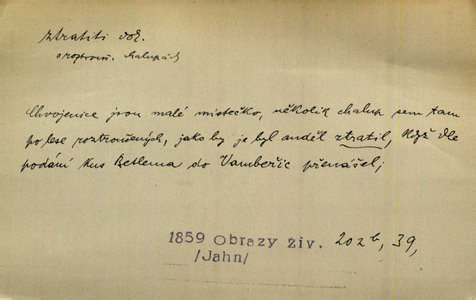 ztratiti vok.
o roztrouš. chalupách
Chvojenice jsou malé městečko, několik chalup sem tam
po lese roztroušených, jako by je byl anděl ztratil, když dle
podání kus Betlema do Vambeřic přenášel;
1859 Obrazy živ. 202 b, 39,
/Jahn/